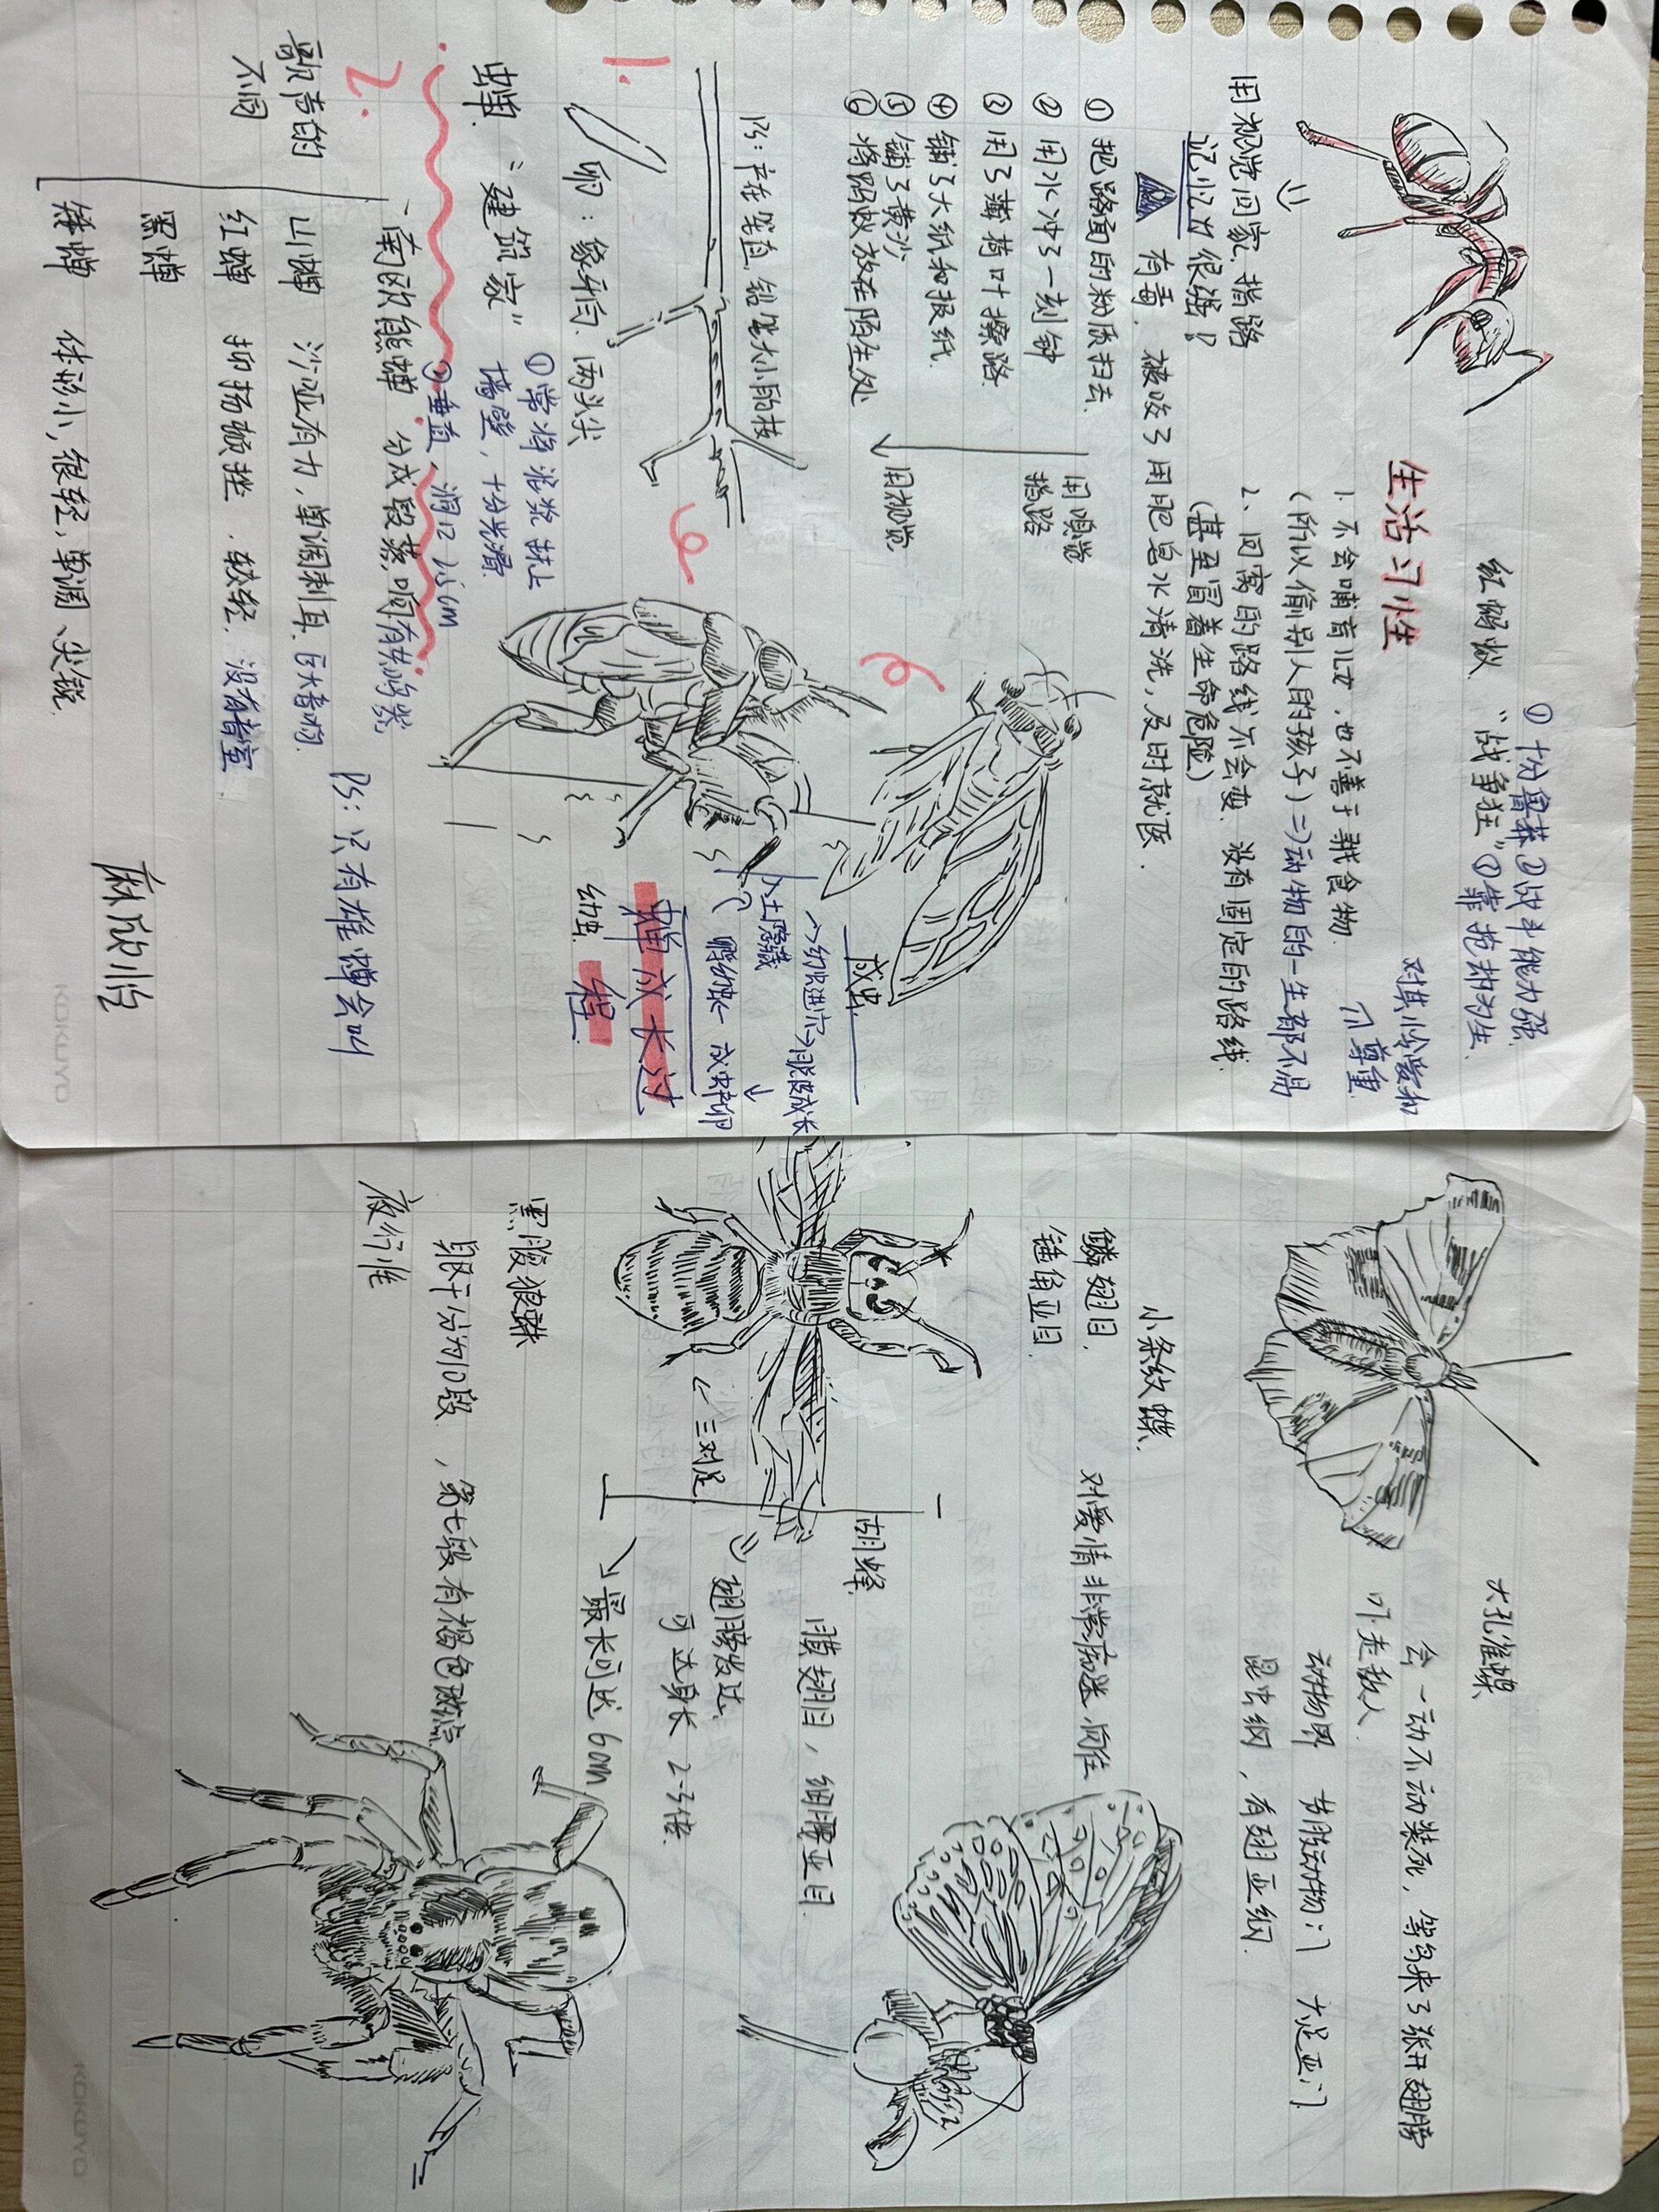 红蚂蚁
“战争狂”
①十分鲁莽②战斗能力强
①靠抢劫为生
生活习性
对其怜爱和
尊重
1. 不会哺育儿女，也不善于寻食物.
(所以偷别人的孩子)=>动物的一生都不易
2、回窝的路线不会变. 没有固定的路线.
(甚至冒着生命危险)
用视觉回家.指路
记忆力很强!
有毒. 被咬了用肥皂水清洗,及时就医.
①把路面的粉质扫去.
②用水冲了一刻钟
③用了薄荷叶擦路
④铺了大纸和报纸.
⑤铺了黄沙
⑥将蚂蚁放在陌生处
用嗅觉
指路
用视觉
PS：产在笔直,铅笔大小的枝
1.
卵：象牙白. 两头尖
蝉. “建筑家”
①常将泥浆敷上
墙壁，十分光滑.
②垂直、洞口 2.5cm
成虫
幼虫进行蜕皮成长
入土隐藏
孵幼虫 成虫产卵
蝉成长过
程
幼虫.
2.
歌声的
不同
南欧熊蝉 分成段落，间有共鸣类
山蝉 沙哑有力，单调刺耳.巨大音响.
红蝉 抑扬顿挫. 较轻. 没有音室.
黑蝉
矮蝉 体形小,很轻,单调、尖锐.
PS：只有雄蝉会叫
麻欣怡
KOKUYO
大孔雀蝶
会一动不动装死，等鸟来了张开翅膀
吓走敌人
动物界 节肢动物门 六足亚门
昆虫纲，有翅亚纲.
小条纹蝶.
鳞翅目.
锤角亚目.
对爱情非常痴迷,向往
胡蜂.
膜翅目，细腰亚目.
三对足
翅膀发达.
可达身长2-3倍.
最长可达6cm
黑腹狼蛛
躯干分为10段，第七段有褐色斑点
夜行性
KOKUYO